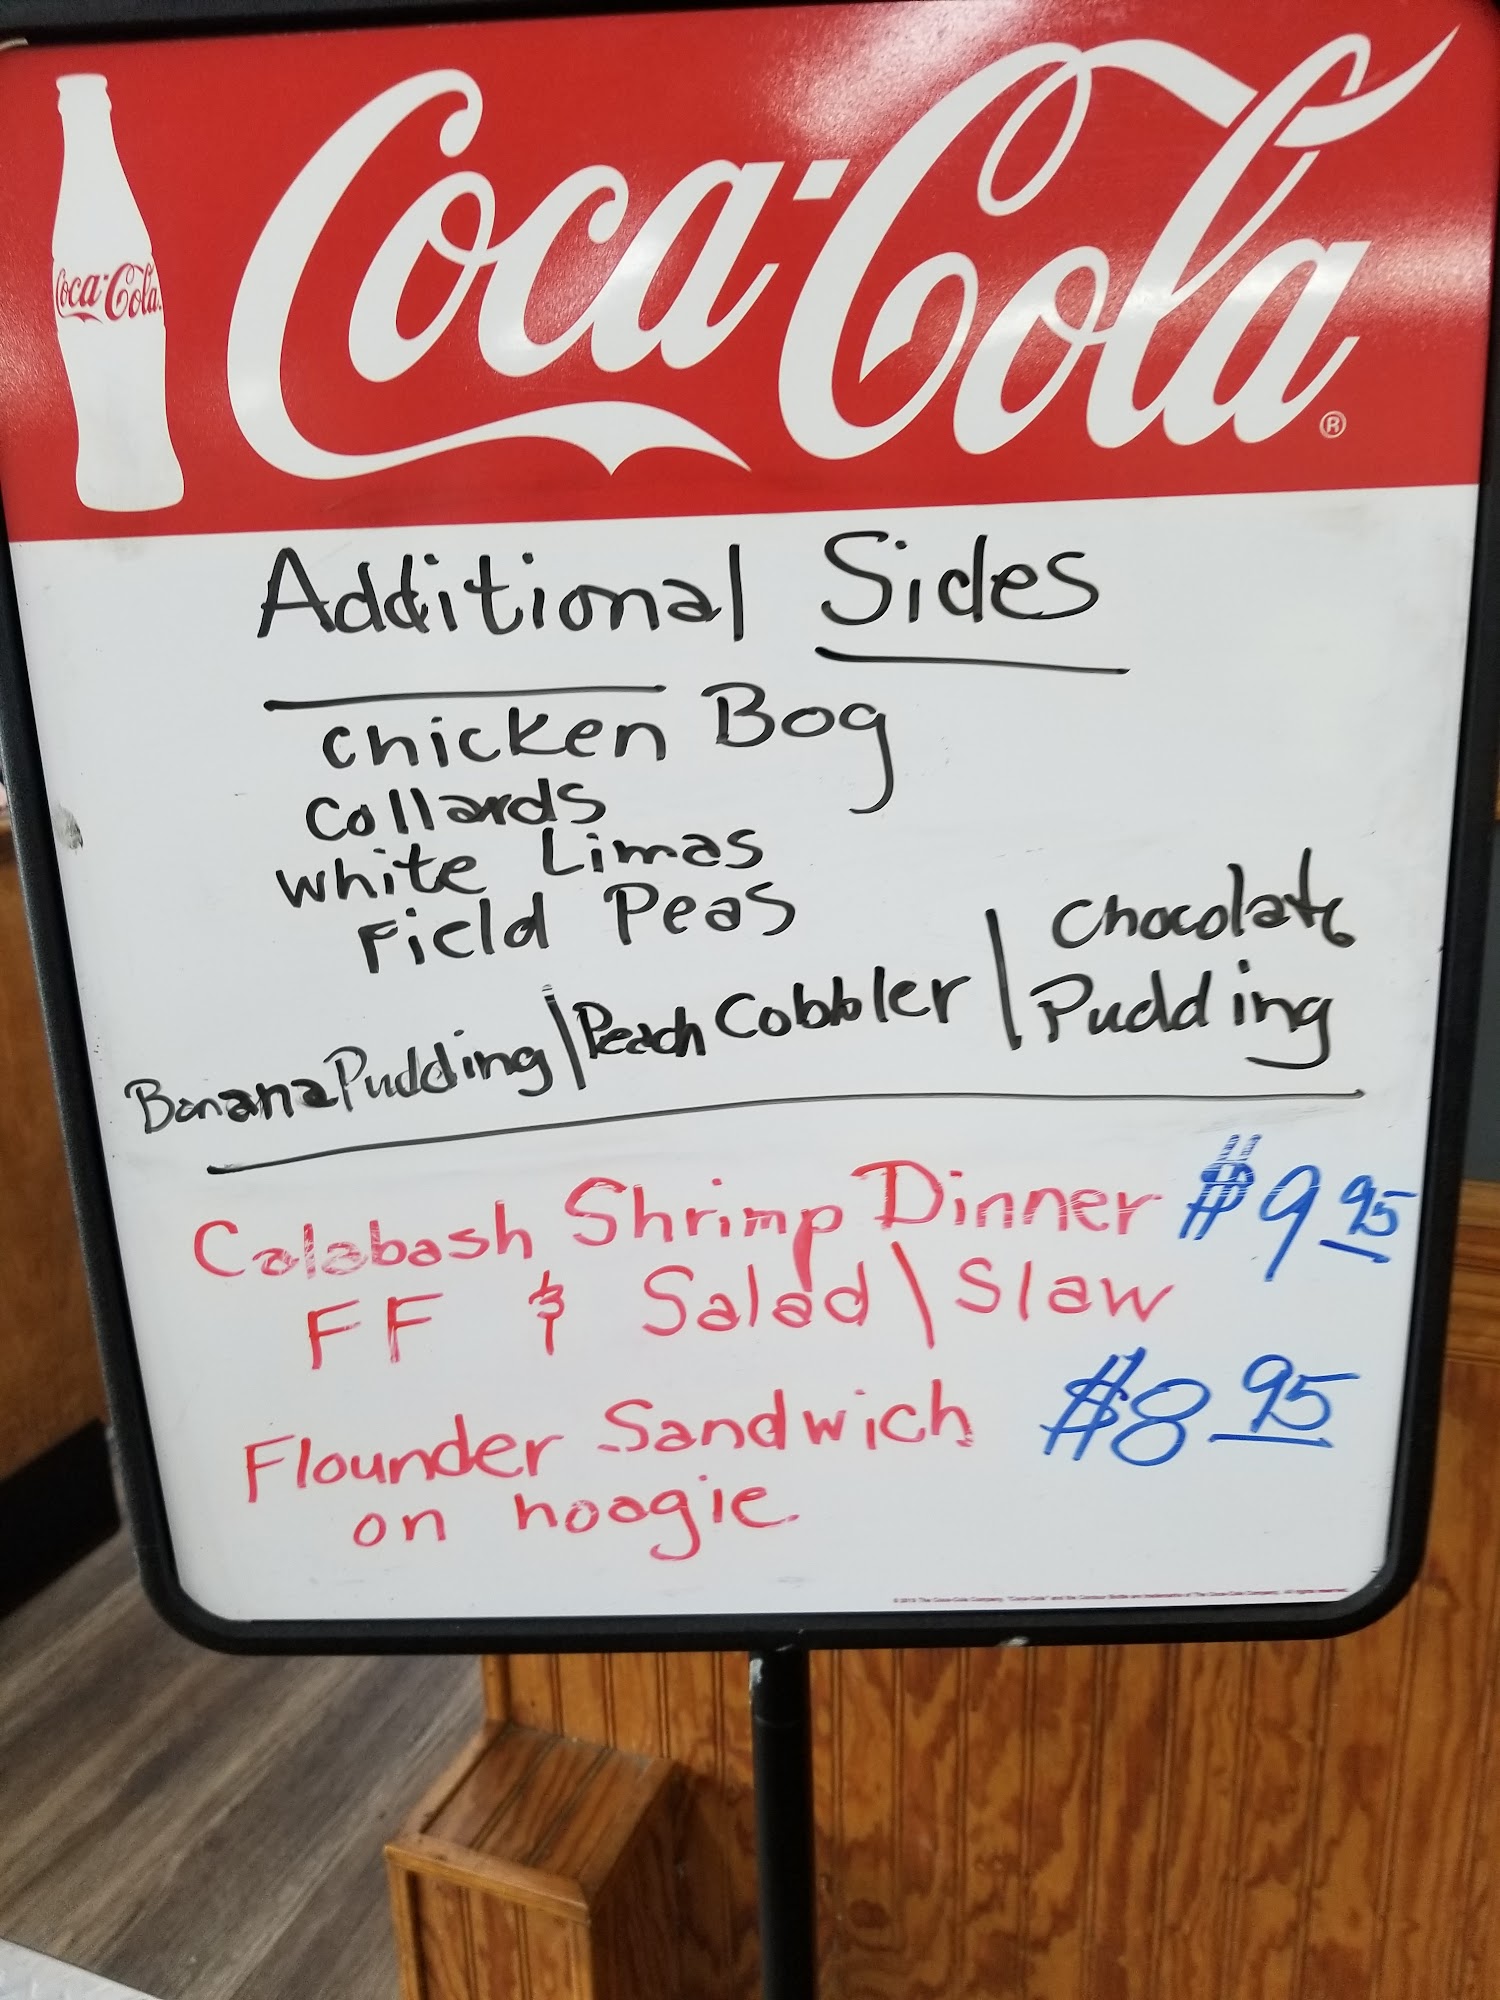 Coca-Cola
Coca-Cola®
Additional Sides
chicken Bog
Collards
white Limas
Field Peas
Banana Pudding / Peach Cobbler / Chocolate Pudding
Calabash Shrimp Dinner $9 95
FF & Salad \ Slaw
Flounder Sandwich $8 95
on hoagie